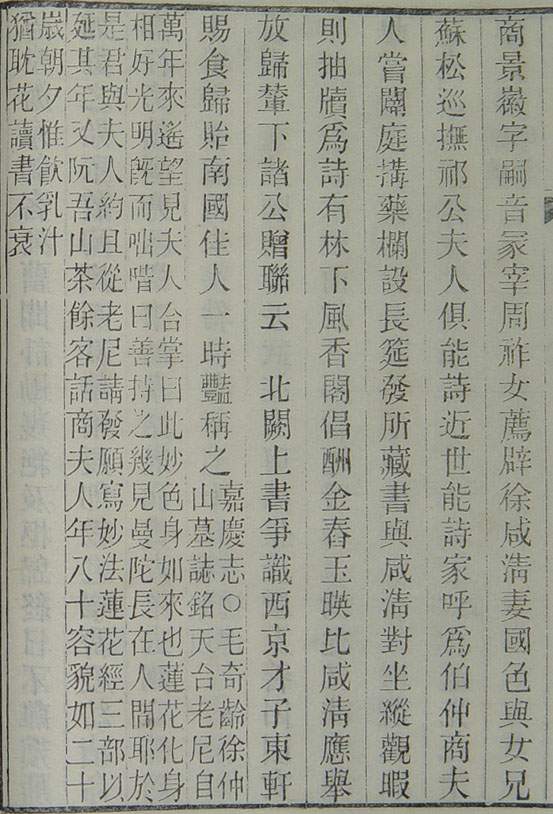 商景徽字嗣音冢宰周祚女薦辟徐咸淸妻國色與女兄
蘇松巡撫祁公夫人俱能詩近世能詩家呼爲伯仲商夫
人嘗闢庭搆藥欄設長筵發所藏書與咸淸對坐縱觀暇
則抽牘爲詩有林下風香閣倡酬金舂玉暎比咸淸應舉
放歸輦下諸公贈聯云　北闕上書爭識西京才子東軒
賜食歸貽南國佳人一時豔稱之
嘉慶志○毛奇齡徐仲
山墓誌銘天台老尼自
萬年來遙望見夫人合掌曰此妙色身如來也蓮花化身
相好光明旣而咄嗟曰善持之幾見曼陀長在人間耶於
是君與夫人約且從老尼請發願寫妙法蓮花經三部以
延其年又阮吾山茶餘客話商夫人年八十容貌如二十
歲朝夕惟飮乳汁
猶耽花讀書不衰